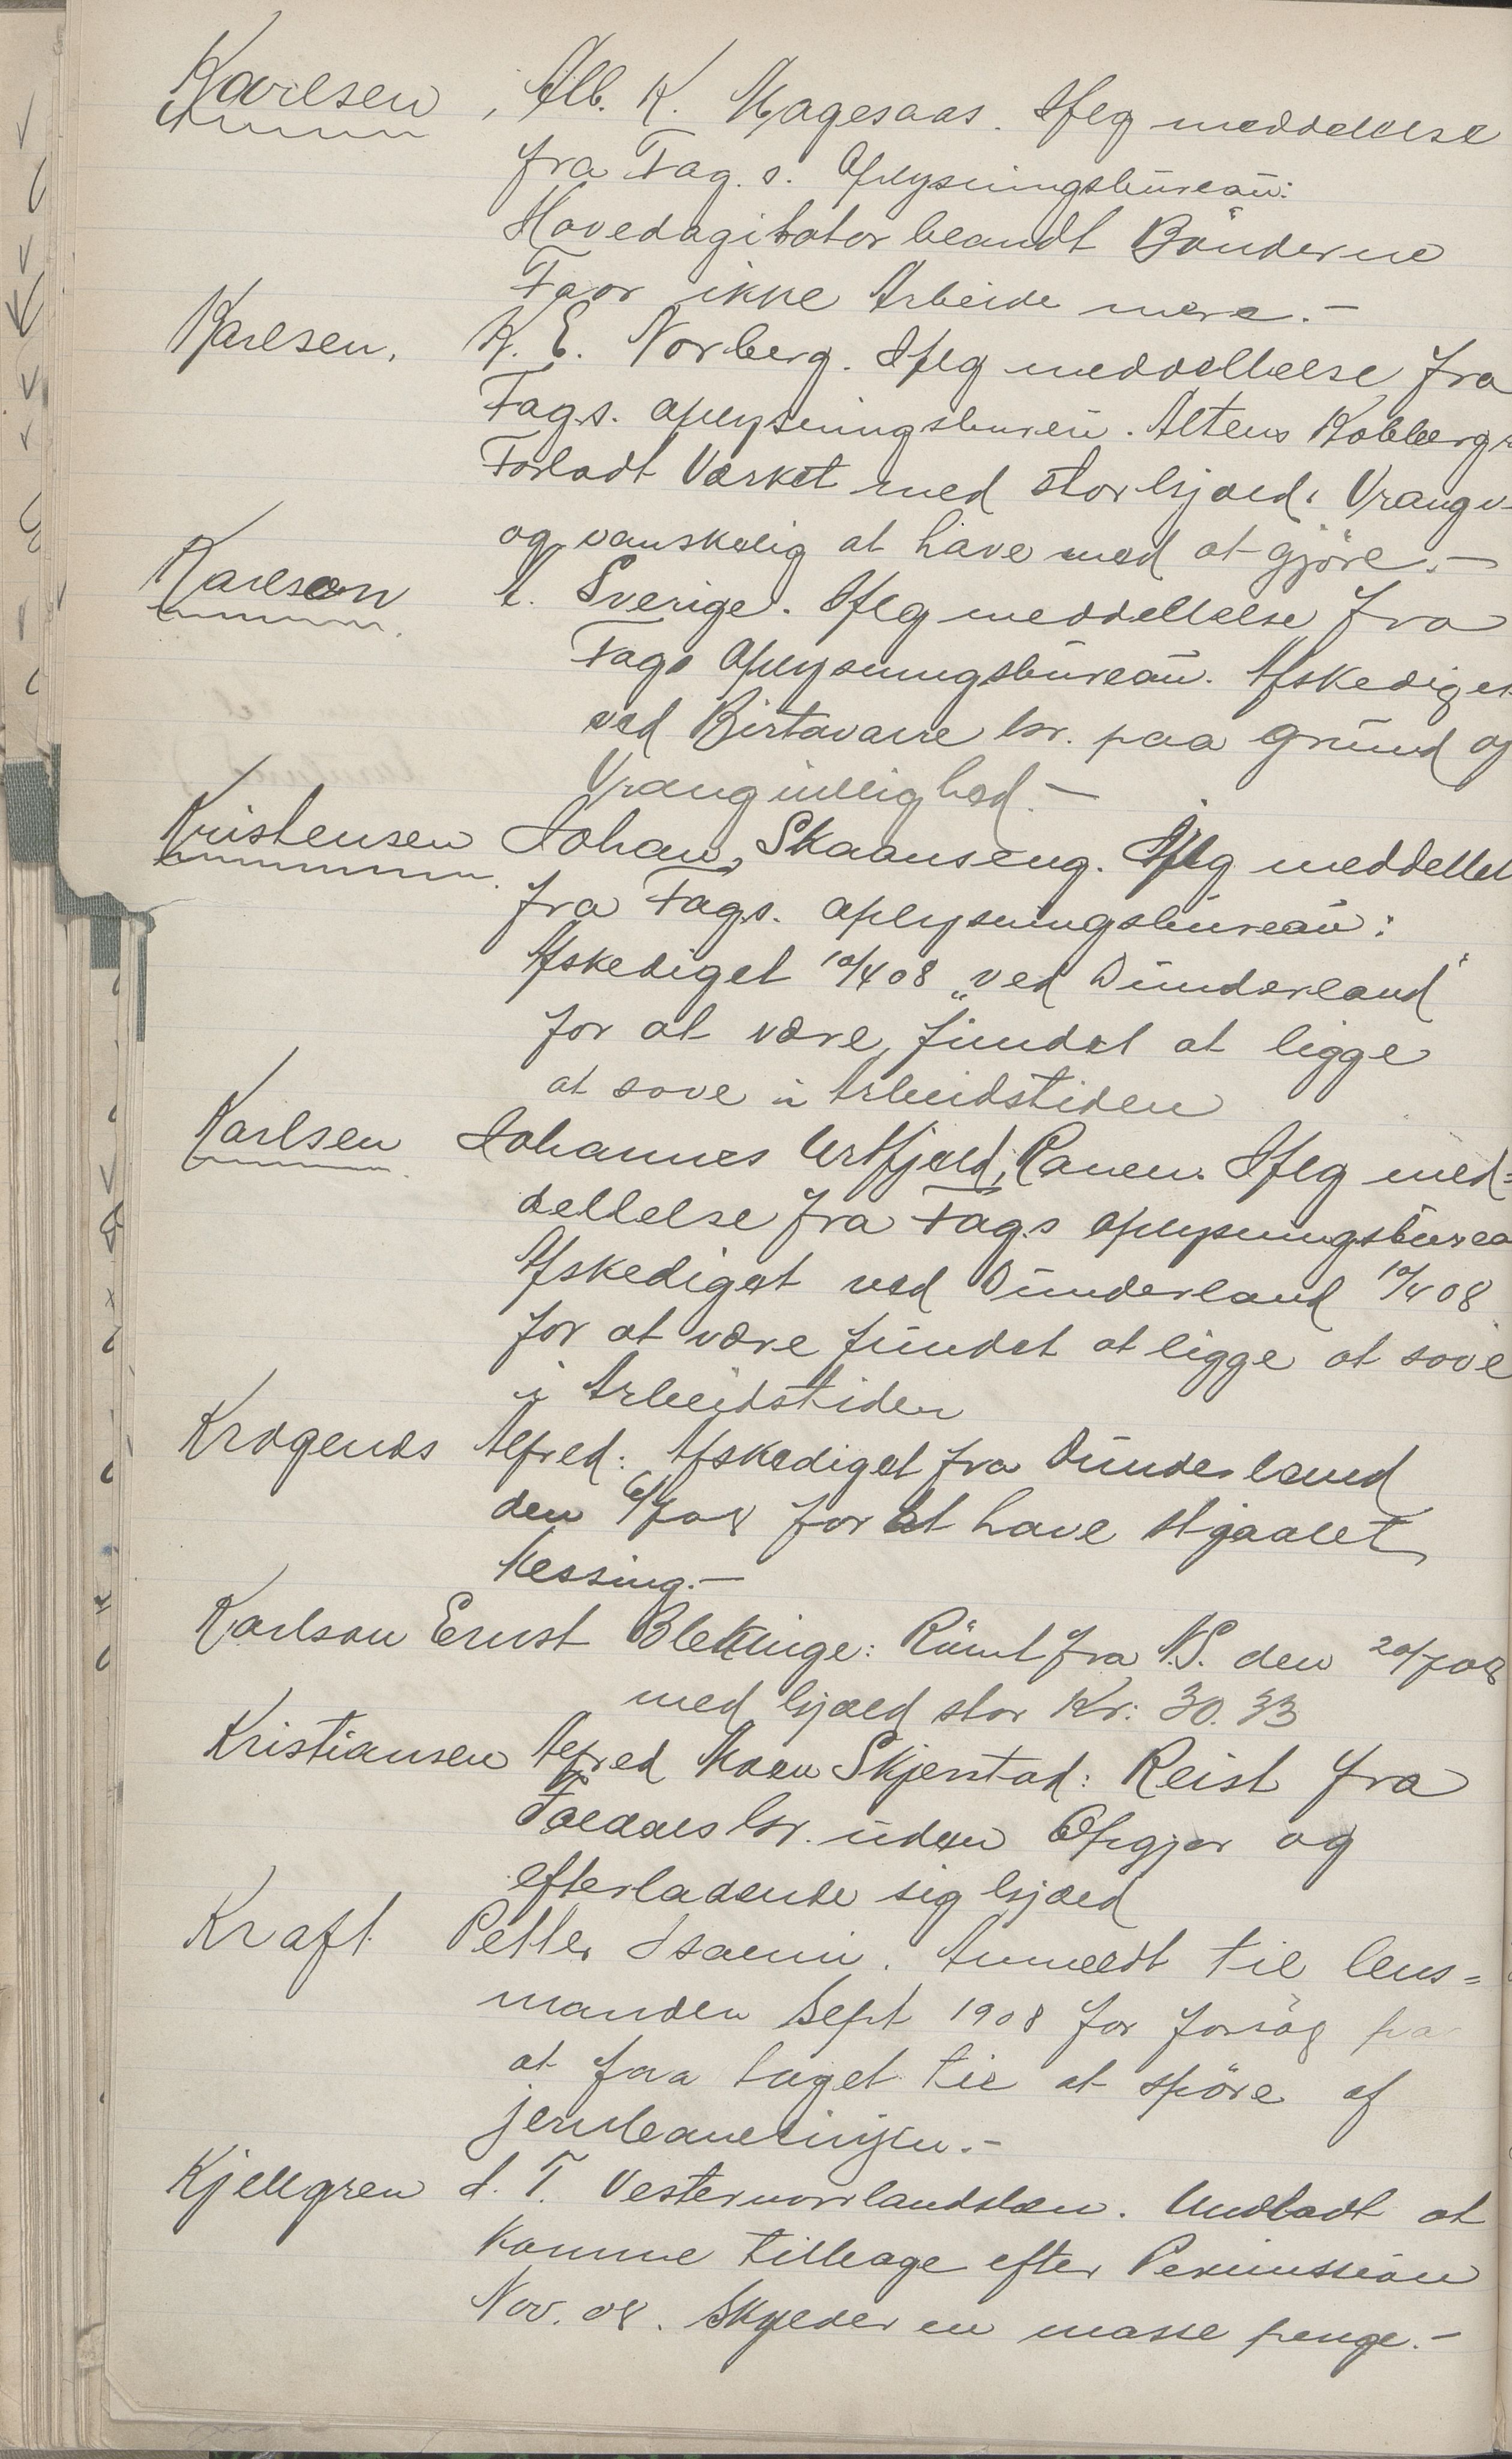 Karlsen, Alb. K. Hagesaas. Iflg meddelelse
fra Fag. s. Oplysningsbureau:
Hovedagitator blandt Bönderne
Faar ikke Arbeide mere.-
Karlsen, K. E. Norberg. Iflg meddellelse fra
Fag.s. oplysningsbureu. Altens Kobberg
Forladt Værket med stor Gjæld. Vrang v-
og vanskelig at have med at gjöre.-
Karlson t. Sverige. Iflg meddellelse fra
Fags Oplysningsbureau. Afskediget
ved Birtavarre Gr. paa Grund af
Vrangvillighed.-
Kristensen Johan, Skaanseng. Iflg meddellel
fra Fag.s. oplysningsbureau:
Afskediget 10/4 08 „ved Dunderland"
for at være fundet at ligge
at sove i Arbeidstiden
Karlsen Johannes Urtfjeld, Ranen. Iflg med=
dellelse fra Fag.s oplysningsburea
Afskediget ved Dunderland 10/4 08
for at være fundet at ligge at sove
i Arbeidstiden
Krogenos Alfred: Afskediget fra Dunderland
den 6/7 08 for at have stjaalet
Messing.-
Karlson Ernst Blekinge: Römt fra N.S. den 20/7 08
med Gjæld stor Kr: 30.33
Kristiansen Alfred Moen Skjerstad: Reist fra
Foldals Gr. uden Opgjør og
efterladende sig Gjæld
Kraft Petter Isak. Anmeldt til lens=
manden Sept 1908 for forsög pa
at faa taget til at spöre af
jernleaneringen.-
Kjellgren d. T. Vesternorrlandslæn. Undladt at
komme tilbage efter Permission
Nov. 08. Skylder en masse penge.-